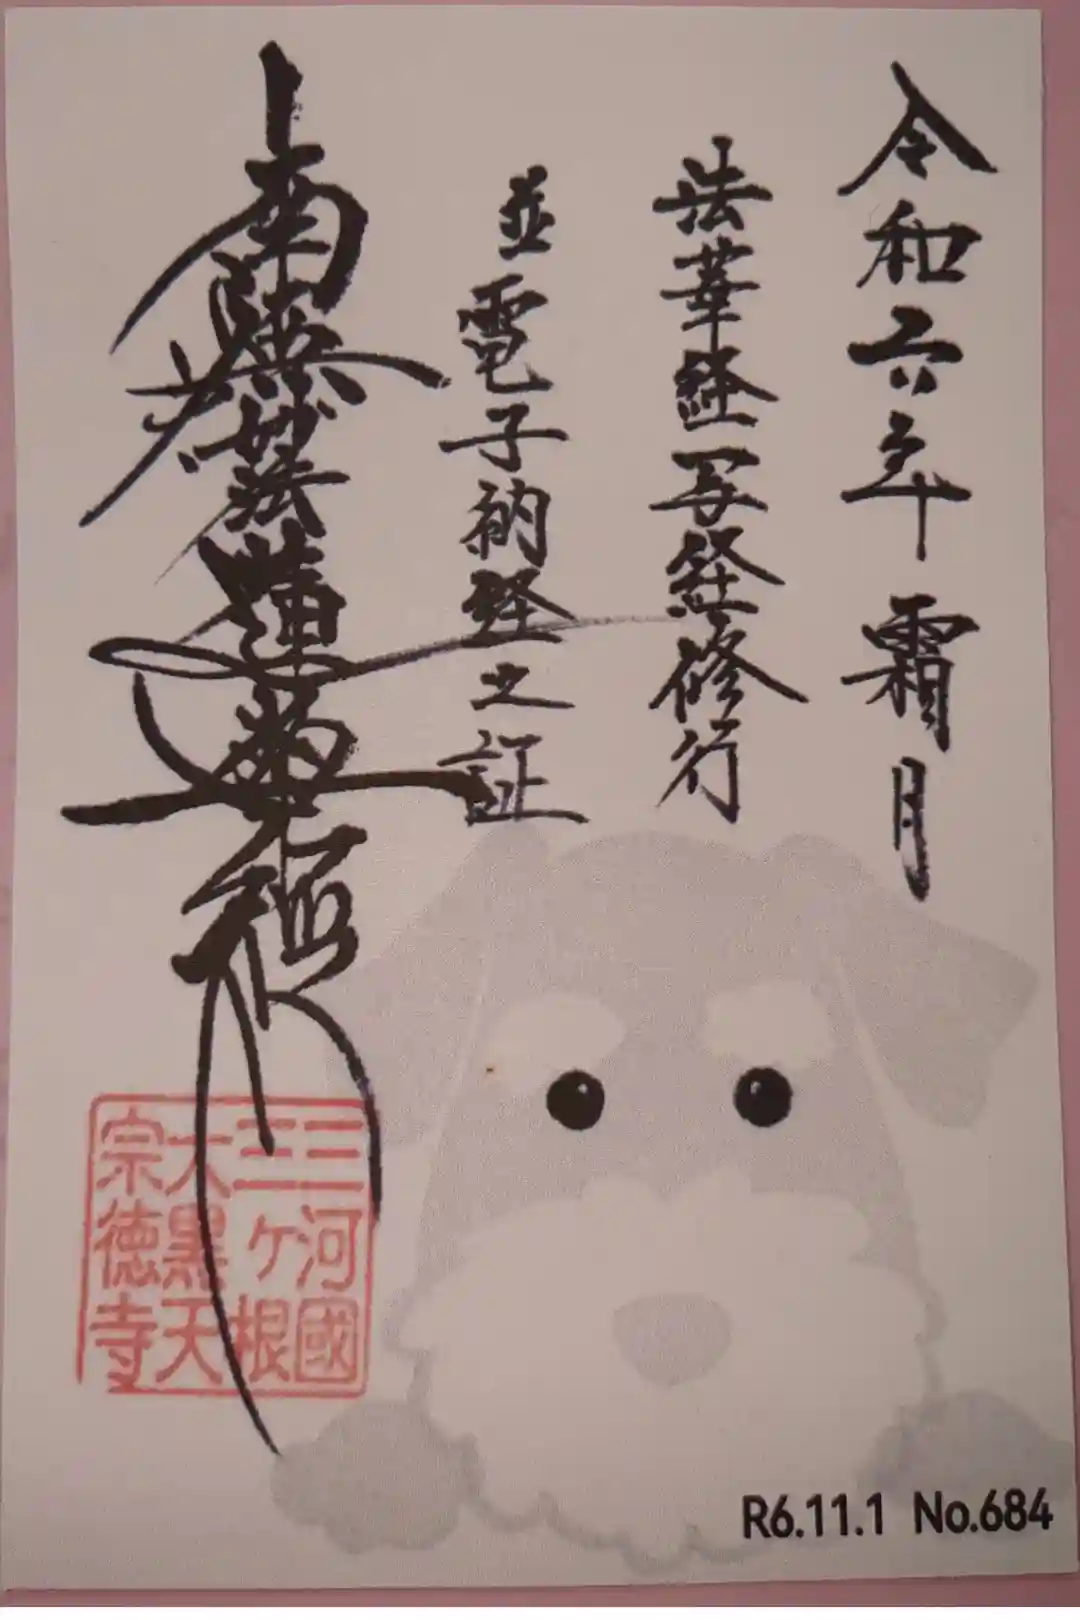 令和六年 霜月
法華経写経修行
並電子納経之証
南無妙法蓮華経
三河國
三ヶ根
大黒天
宗徳寺
R6.11.1 No.684